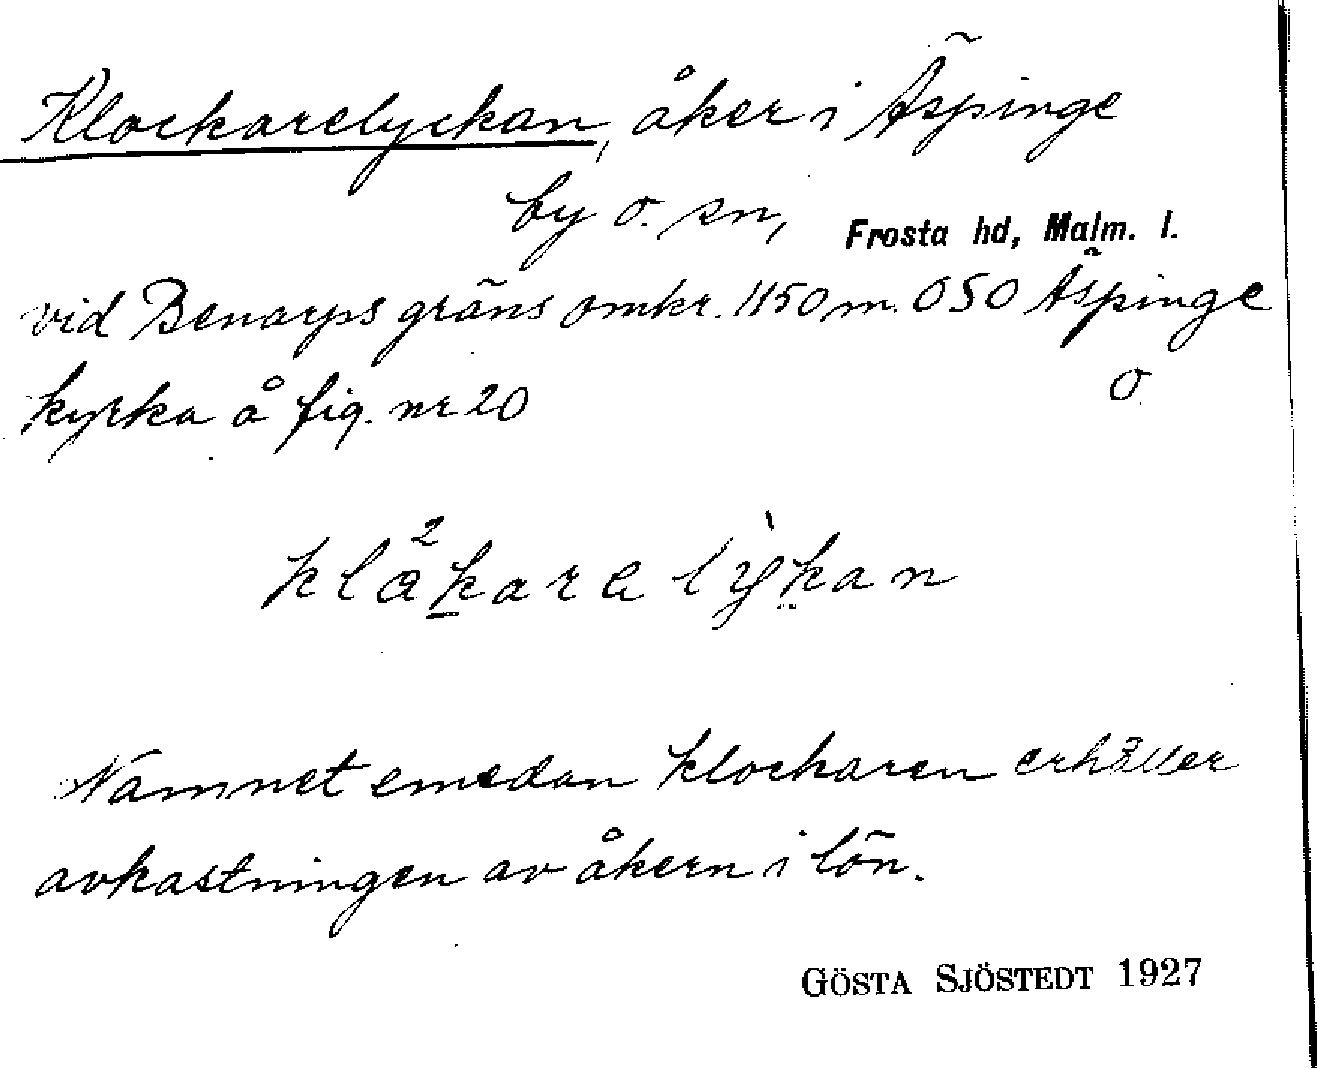 Klockarelyckan, åker i Äspinge
by o. sn, Frosta hd, Malm. l.
vid Benarps gräns omkr. 1150 m. OSO Äspinge
kyrka å fig. nr 20 O
klåkara lykan
Namnet emedan klockaren erhåller
avkastningen av åkern i lön.
GÖSTA SJÖSTEDT 1927